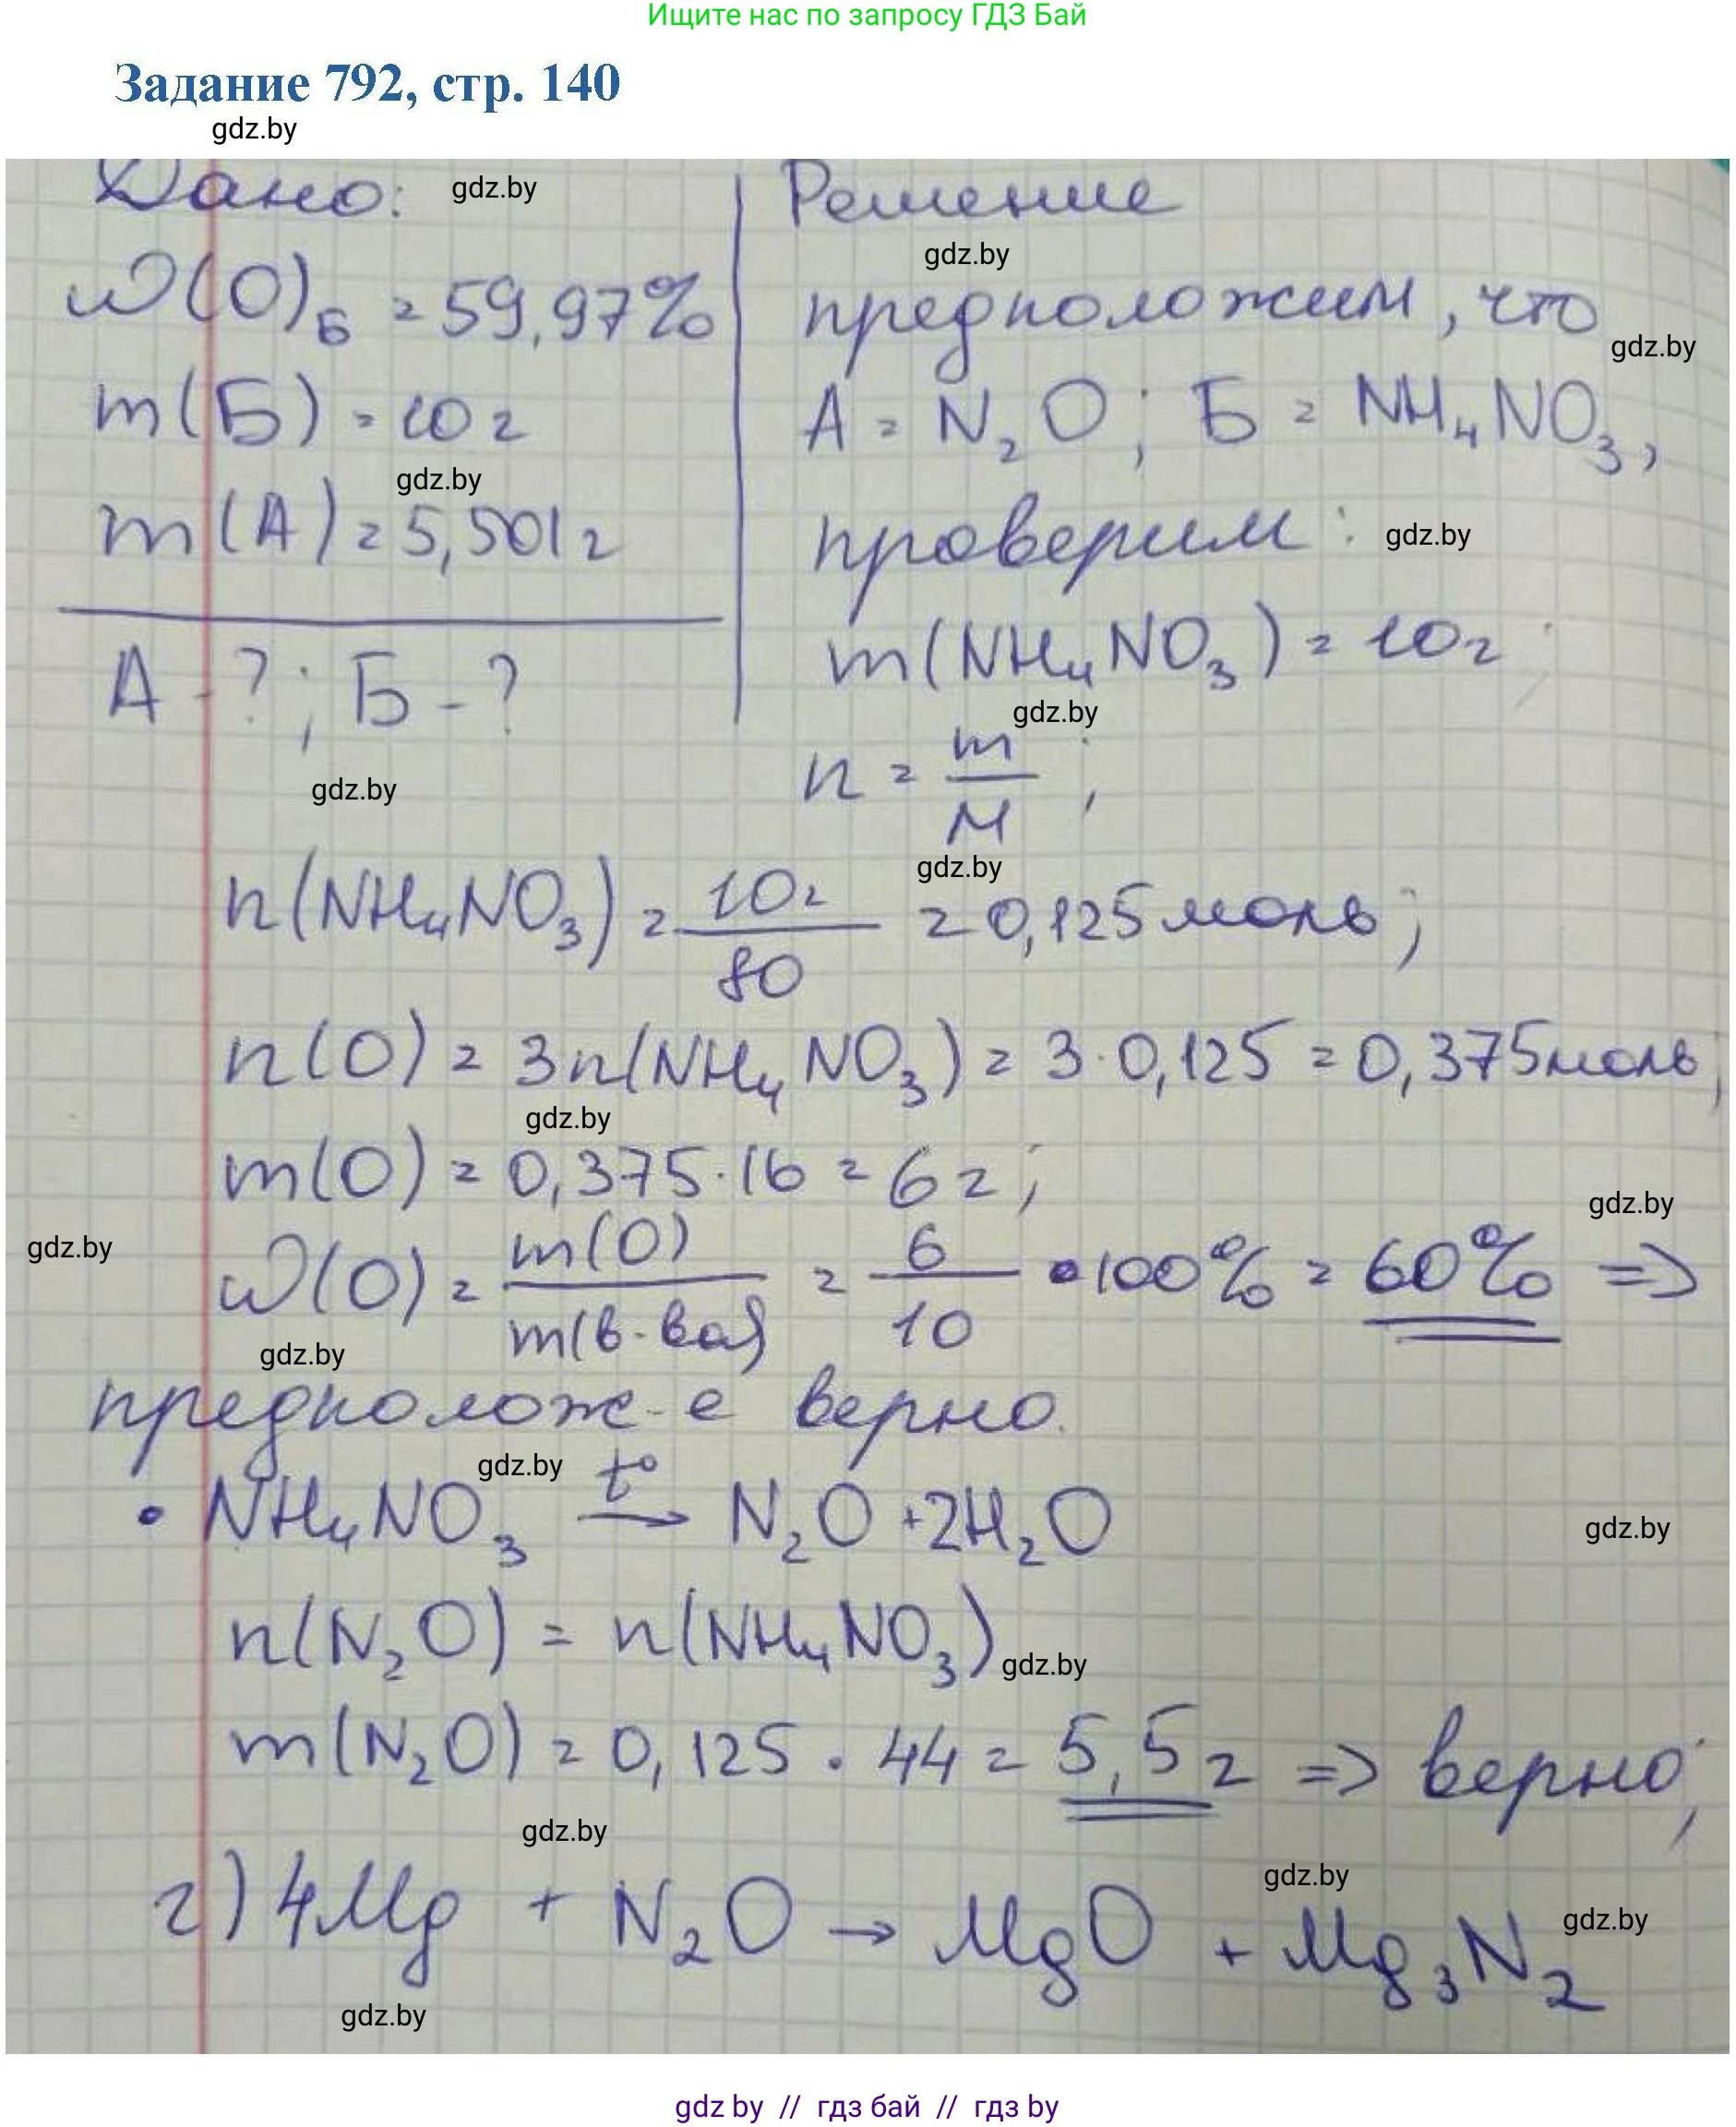 Ищите нас по запросу ГДЗ Бай
Задание 792, стр. 140
gdz.by
Дано: gdz.by
Решение
gdz.by
W(O)Б = 59,97%
предположим, что
gdz.by
m(Б) = 10г
A = N₂O; Б = NH₄NO₃,
gdz.by
m(A) = 5,501г
проверим: gdz.by
A - ?; Б - ?
m(NH₄NO₃) = 10г
gdz.by
gdz.by
n = m/M;
gdz.by
n(NH₄NO₃) = 10г/80 = 0,125 моль;
n(O) = 3n(NH₄NO₃) = 3·0,125 = 0,375 моль,
gdz.by
m(O) = 0,375·16 = 6г;
gdz.by
gdz.by
W(O) = m(O)/m(в-ва) = 6/10 •100% = 60% =>
gdz.by
предполож-е верно.
gdz.by
• NH₄NO₃ t° → N₂O + 2H₂O
gdz.by
n(N₂O) = n(NH₄NO₃)
gdz.by
m(N₂O) = 0,125 · 44 = 5,5г => верно;
gdz.by
gdz.by
г) 4Mg + N₂O → MgO + Mg₃N₂
gdz.by
gdz.by
gdz by // гдз бай // гдз by